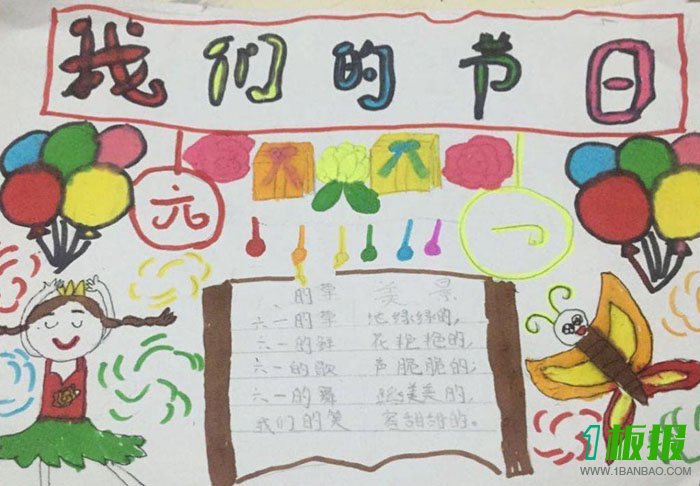 我们的节日
元 一
的 美景
六一的草 地绿绿的,
六一的鲜 花艳艳的,
六一的歌 声脆脆的;
六一的舞 美美的,
我们的笑 甜甜的。
1板报
WWW.1BANBAO.COM